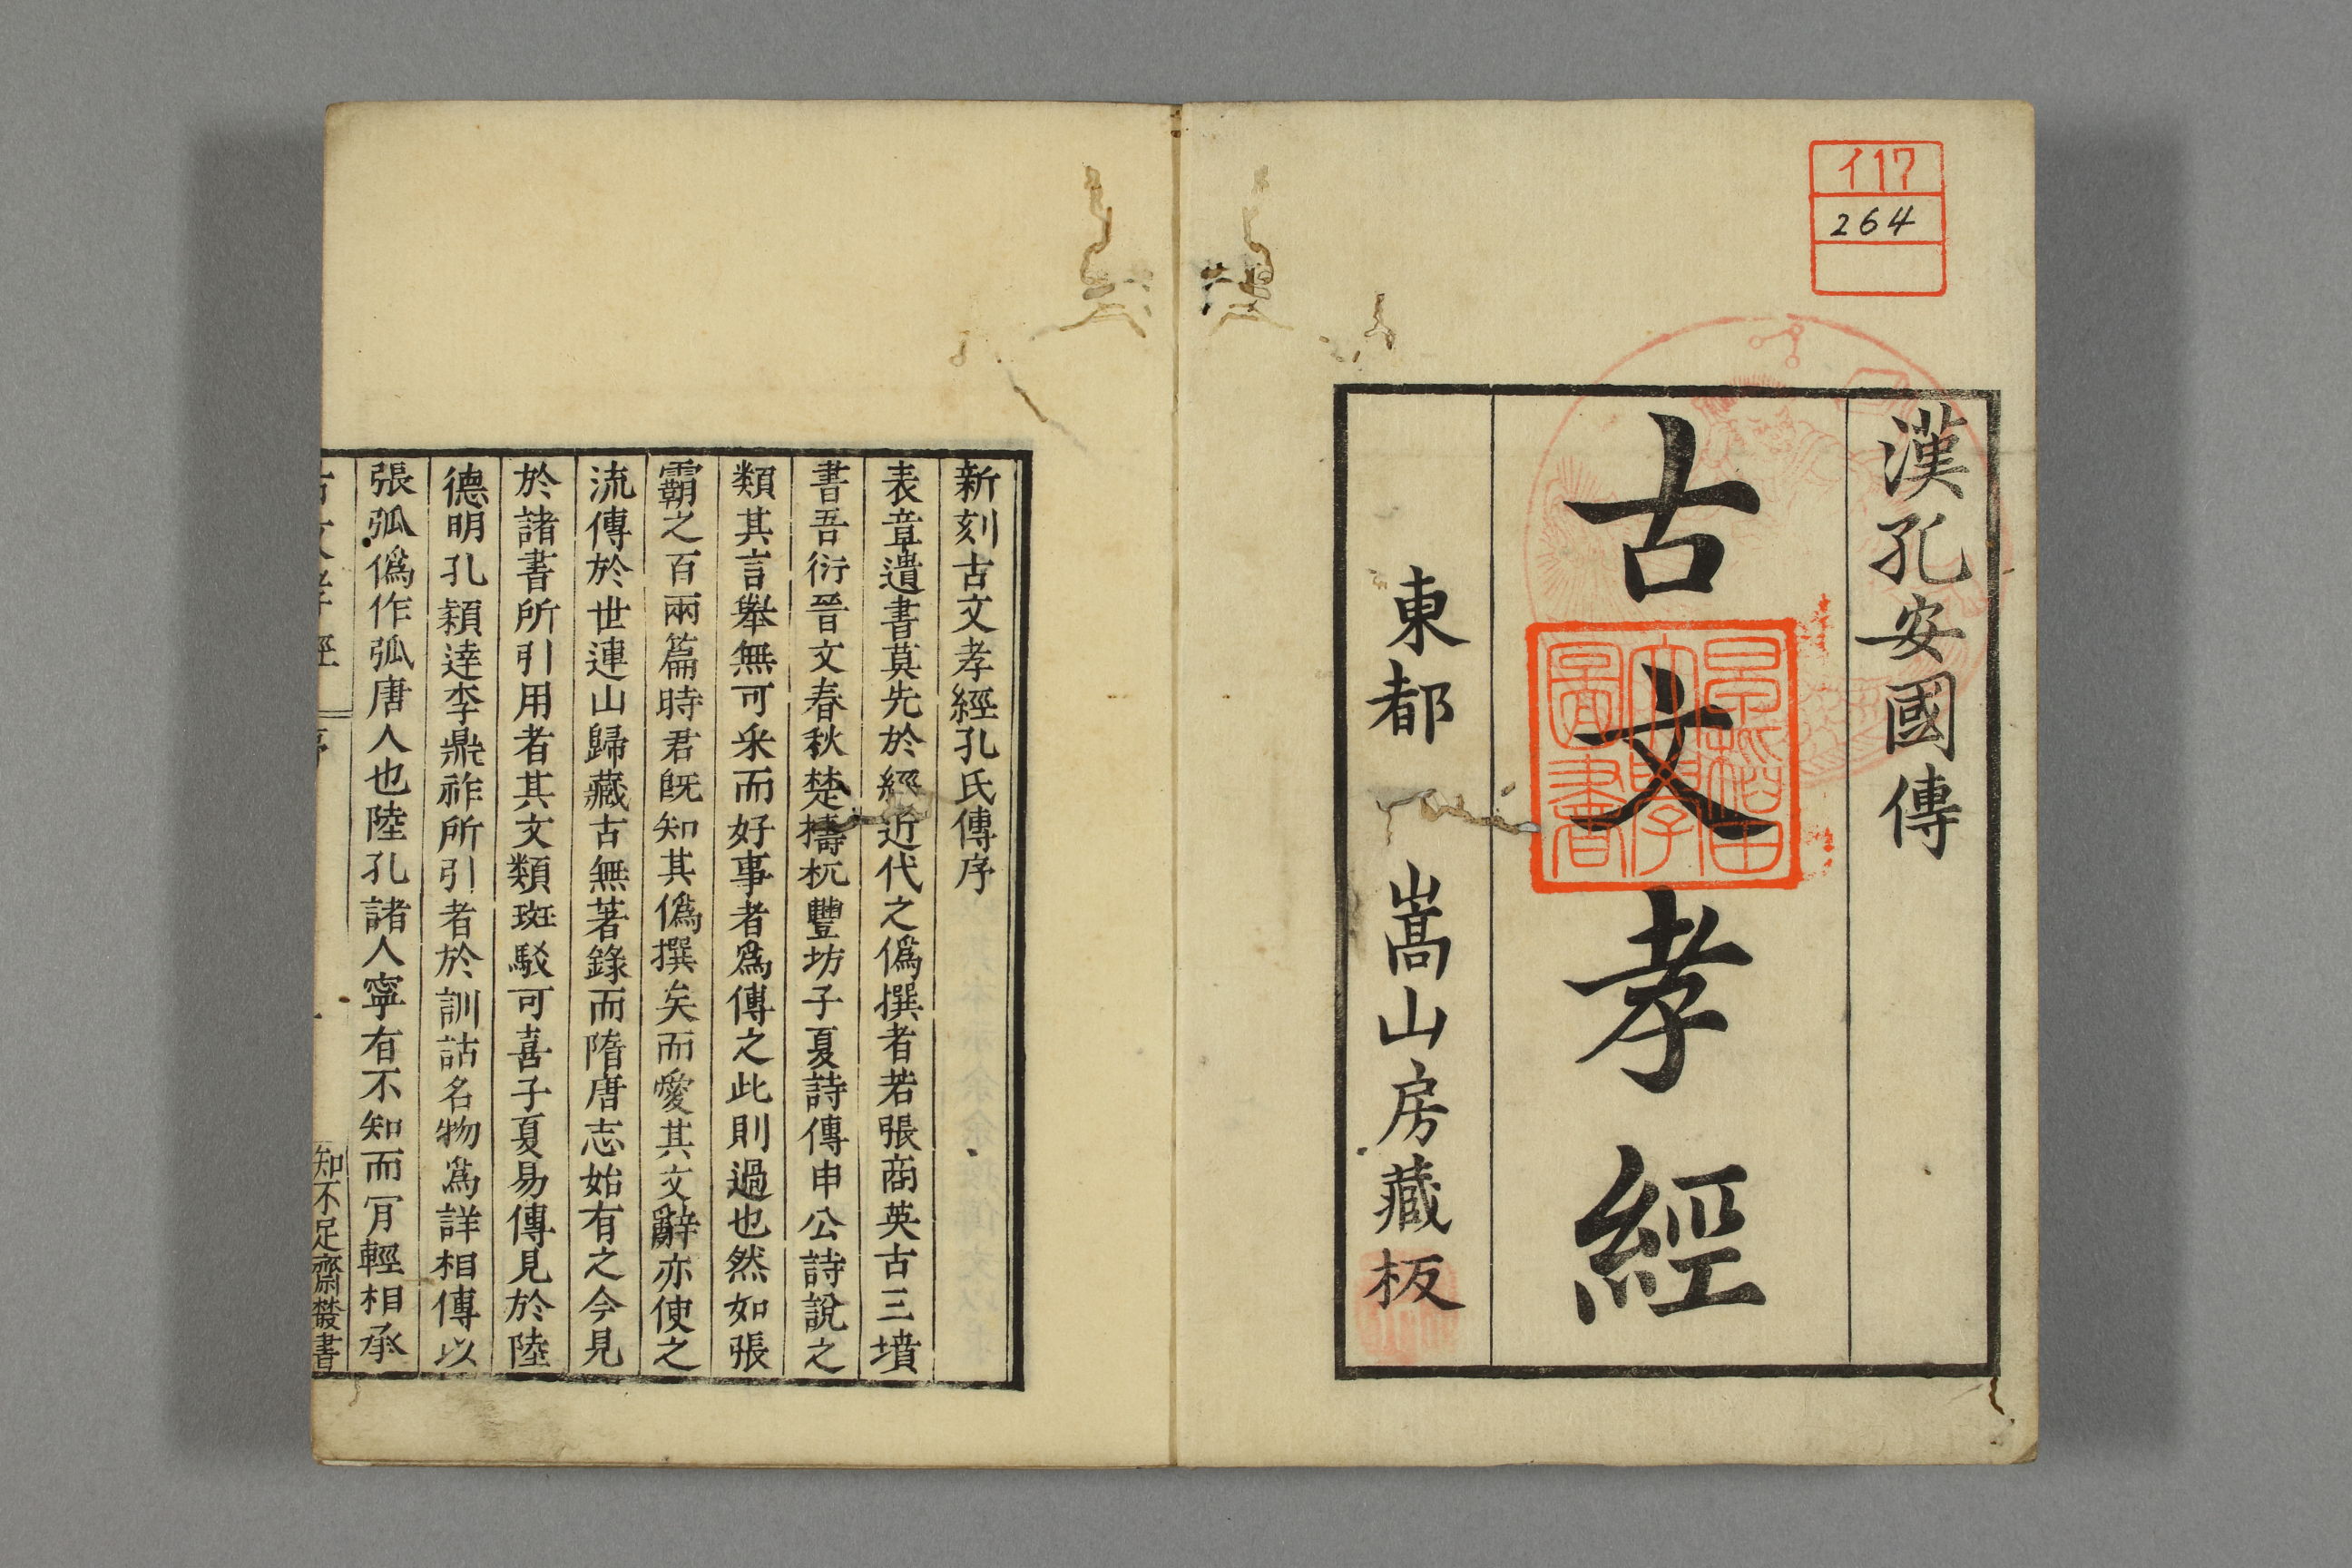 イ17
264
漢孔安國傳
古文孝經
早稻田文學圖書
東都 嵩山房藏板
新刻古文孝經孔氏傳序
表章遺書莫先於經近代之僞撰者若張商英古三墳
書吾衍晉文春秋楚檮杌豐坊子夏詩傳申公詩說之
類其言舉無可采而好事者爲傳之此則過也然如張
霸之百兩篇時君旣知其僞撰矣而愛其文辭亦使之
流傳於世連山歸藏古無著錄而隋唐志始有之今見
於諸書所引用者其文類斑駁可喜子夏易傳見於陸
德明孔穎達李鼎祚所引者於訓詁名物爲詳相傳以
張弧僞作弧唐人也陸孔諸人寧有不知而肎輕相承
古文孝經 序
知不足齋叢書